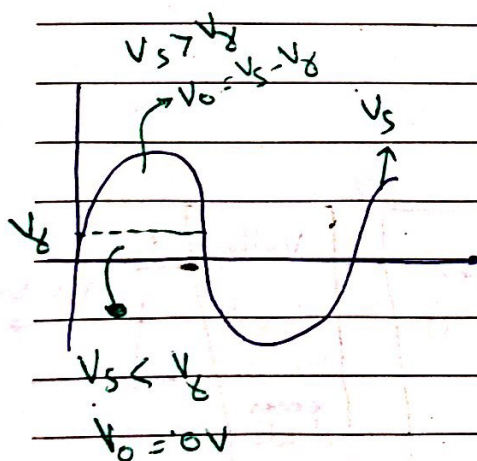 Vs > Vɣ
Vo = Vs - Vɣ
Vs
Vɣ
Vs < Vɣ
Vo = 0V